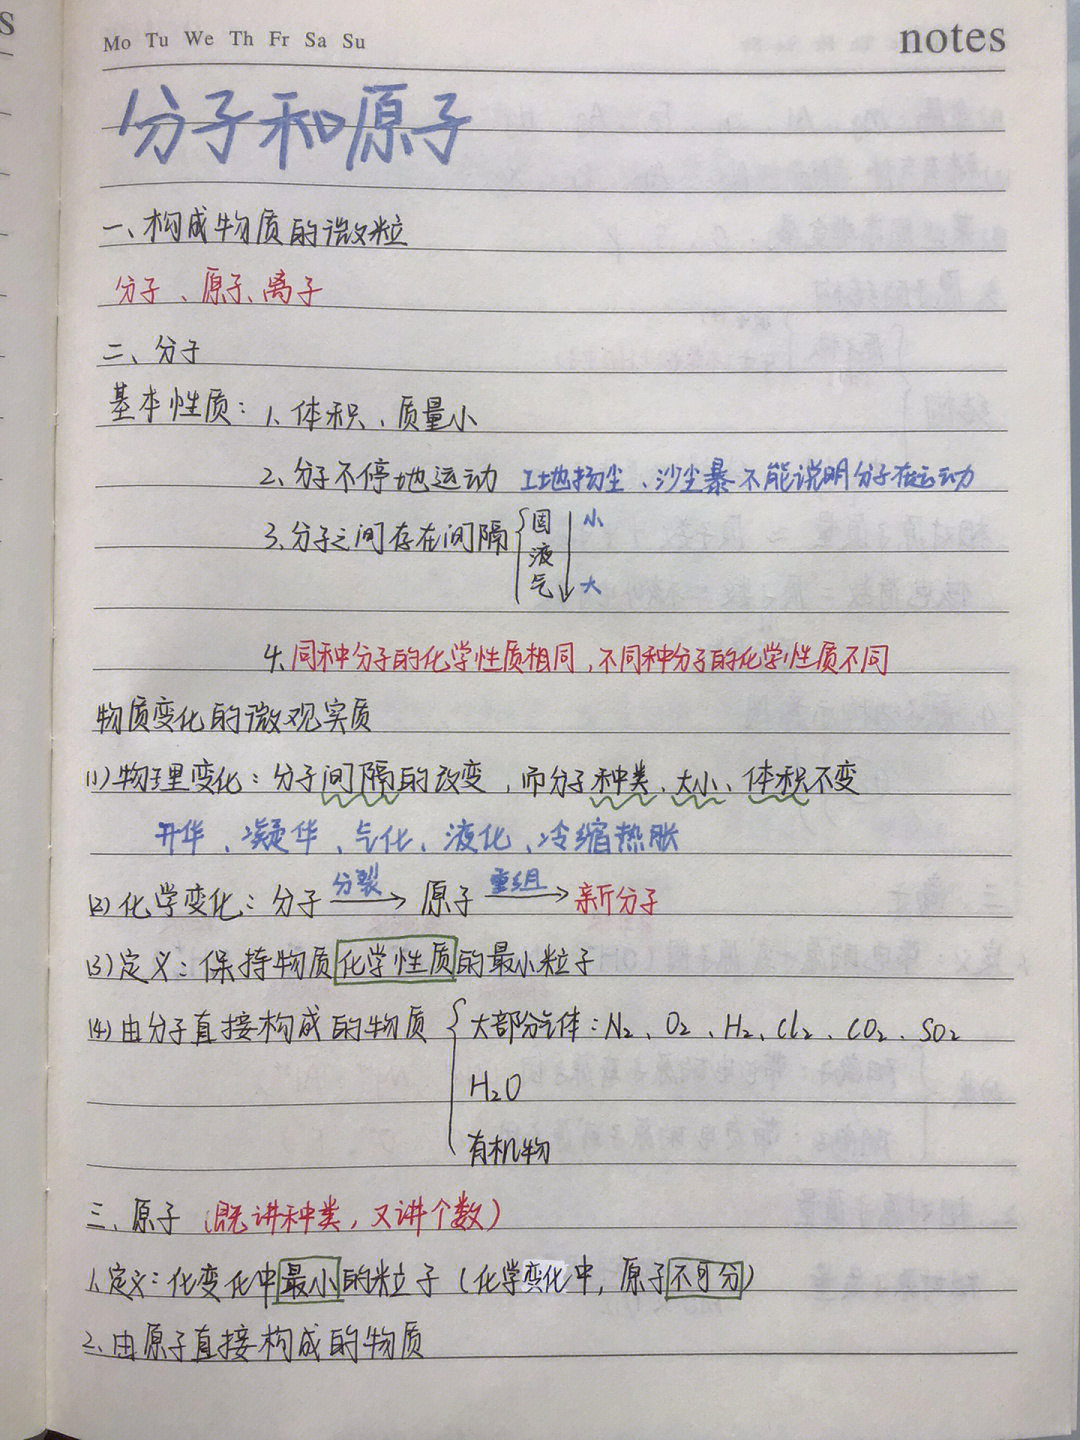 Mo Tu We Th Fr Sa Su
notes
分子和原子
一、构成物质的微粒
分子、原子、离子
二、分子
基本性质: 1、体积、质量小
2、分子不停地运动 工地扬尘、沙尘暴不能说明分子在运动
3、分子之间存在间隔 { 固 小
液
气 大
4、同种分子的化学性质相同,不同种分子的化学性质不同
物质变化的微观实质
(1)物理变化: 分子间隔的改变,而分子种类、大小、体积不变
升华、凝华、气化、液化、冷缩热胀
(2)化学变化: 分子 分裂→ 原子 重组→ 新分子
(3)定义: 保持物质化学性质的最小粒子
(4)由分子直接构成的物质 { 大部分气体: N₂、O₂、H₂、Cl₂、CO₂、SO₂
H₂O
有机物
三、原子 (既讲种类,又讲个数)
1、定义: 化变化中最小的粒子 (化学变化中,原子不可分)
2、由原子直接构成的物质